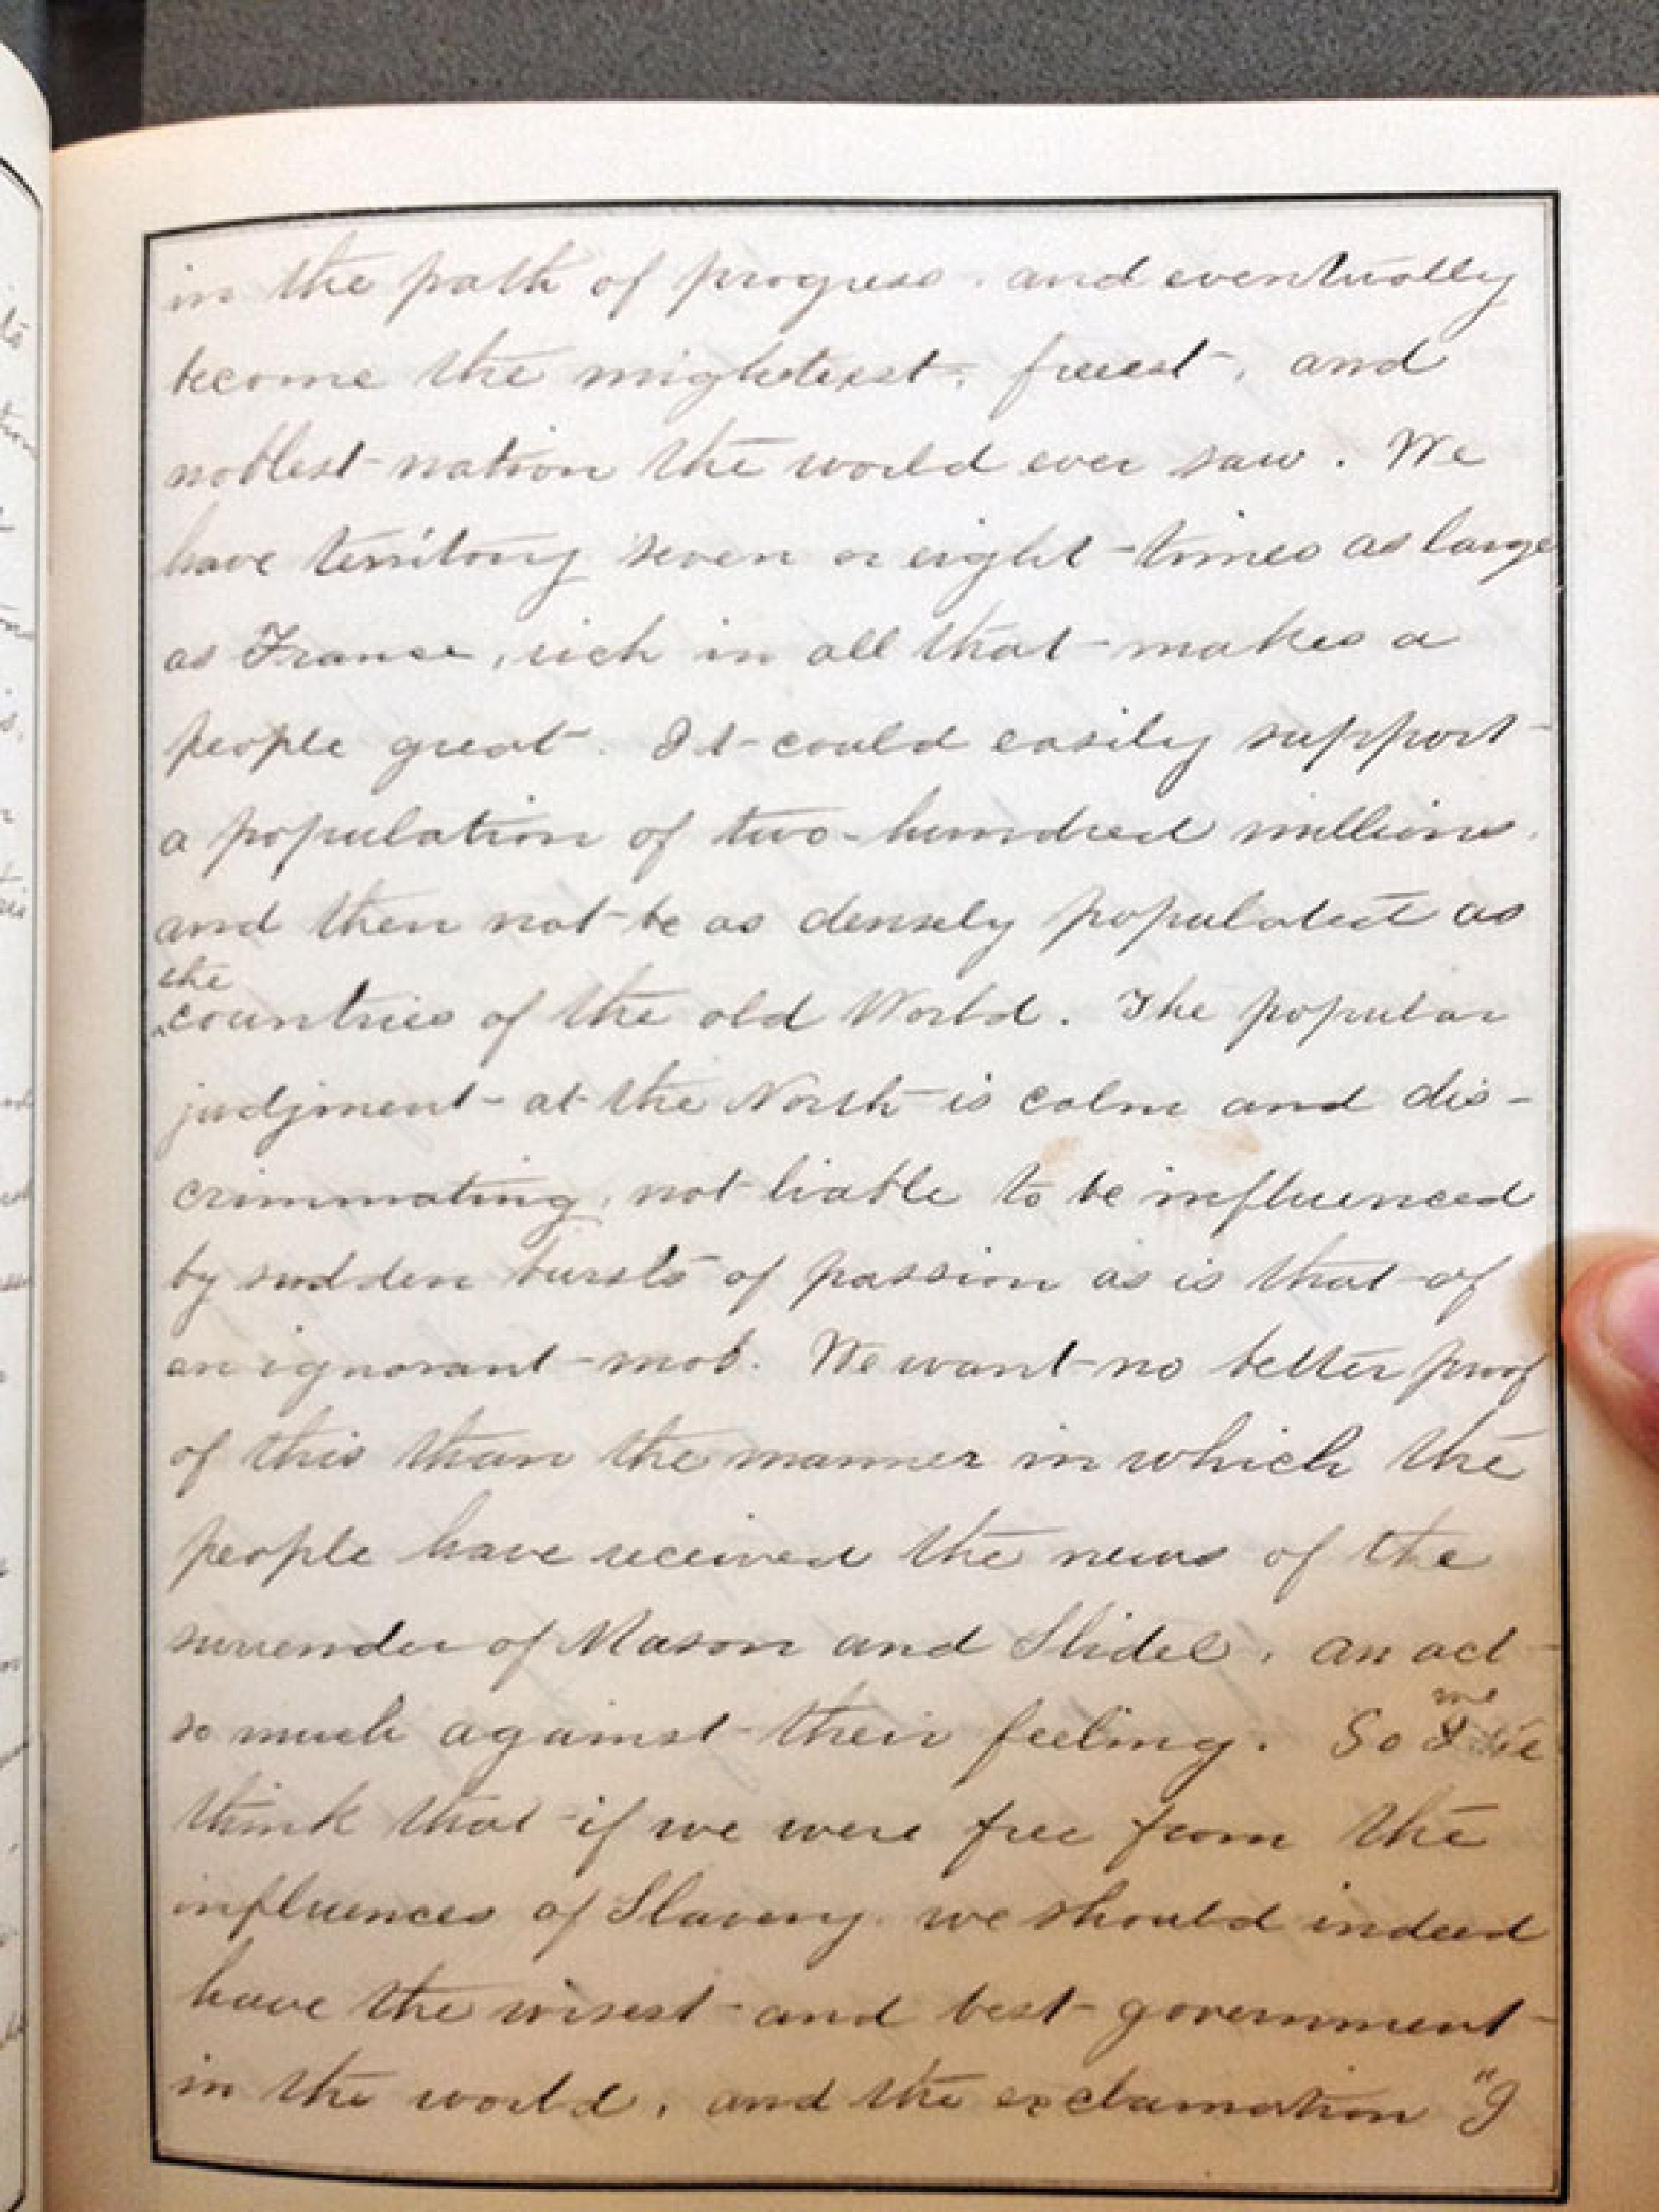 in the path of progress, and eventually
become the mightiest, freest, and
noblest nation the world ever saw. We
have territory seven or eight times as large
as France, rich in all that makes a
people great. It could easily support
a population of two-hundred millions,
and then not be as densely populated as
the
countries of the old World. The popular
judgment at the North is calm and dis-
criminating, not liable to be influenced
by sudden bursts of passion as is that of
an ignorant mob. We want no better proof
of this than the manner in which the
people have received the news of the
surrender of Mason and Slidel, an act
so much against their feeling. So
think that if we were free from the
influences of Slavery we should indeed
have the wisest and best government
in the world, and the exclamation "I